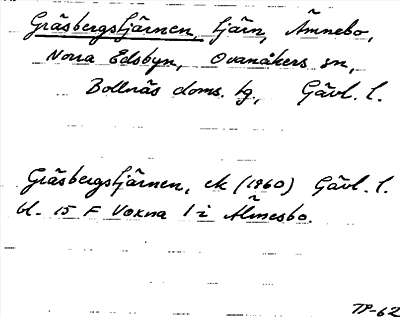 Gräsbergstjärnen, tjärn, Ämnebo,
Norra Edsbyn, Ovanåkers sn,
Bollnäs doms. tg, Gävl. l.
Gräsbergstjärnen, ek (1960) Gävl. l.
bl. 15 F Voxna 1 i Älmesbo.
TP-62